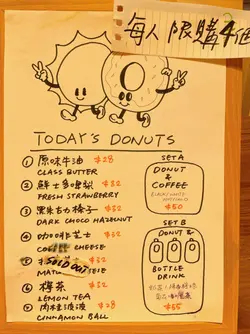 每人限購4個
TODAY'S DONUTS
① 原味牛油 $28
CLASS BUTTER
② 鮮士多啤梨 $32
FRESH STRAWBERRY
③ 黑朱古力榛子 $32
DARK CHOCO HAZELNUT
④ 咖啡芝士 $32
CHEESE
⑤ SOLD OUT $32
⑥ 檸茶 $32
LEMON TEA
⑦ 肉桂波波 $28
CINNAMON BALL
SET A
DONUT
&
COFFEE
$50
SET B
DONUT &
BOTTLE
DRINK
$55